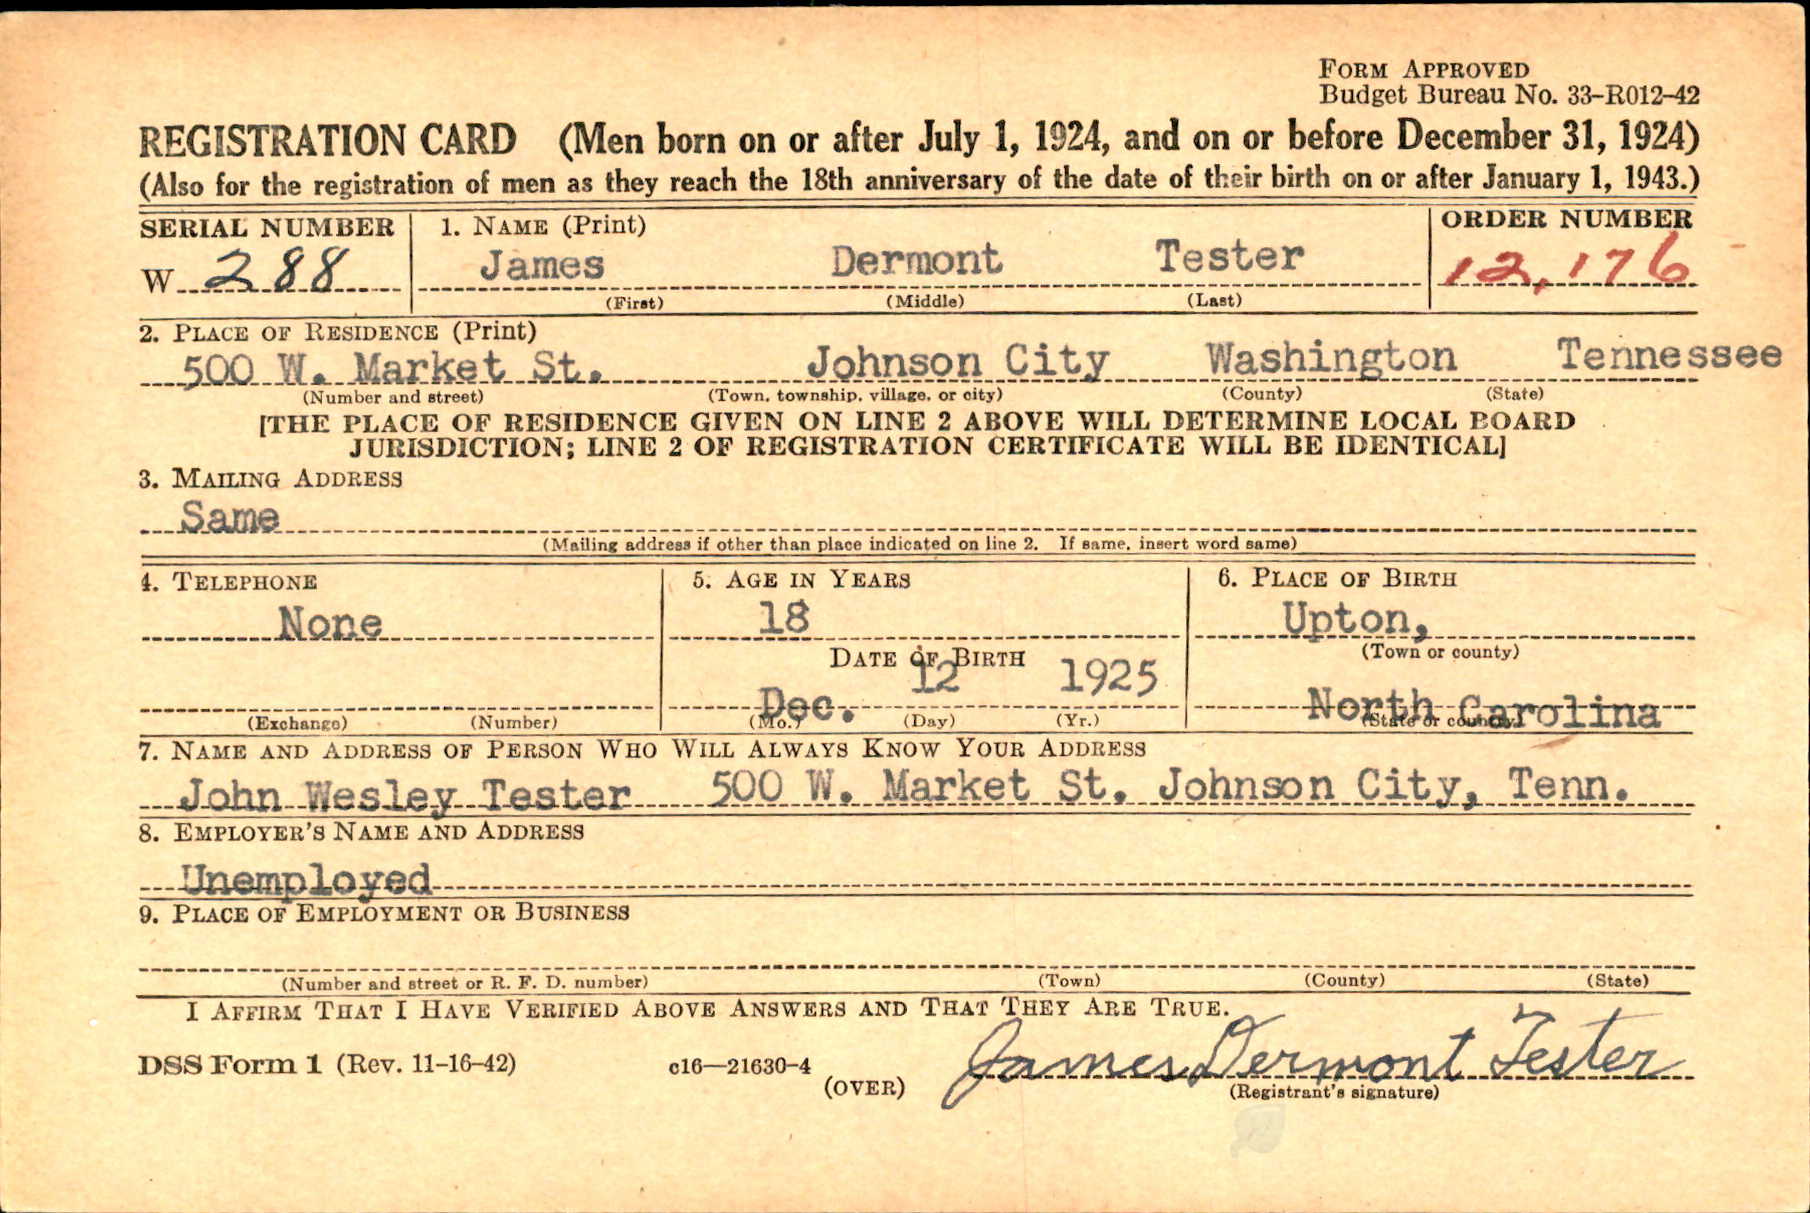 FORM APPROVED
Budget Bureau No. 33-R012-42
REGISTRATION CARD (Men born on or after July 1, 1924, and on or before December 31, 1924)
(Also for the registration of men as they reach the 18th anniversary of the date of their birth on or after January 1, 1943.)
SERIAL NUMBER 1. NAME (Print) ORDER NUMBER
W 288 James Dermont Tester 12,176
(First) (Middle) (Last)
2. PLACE OF RESIDENCE (Print)
500 W. Market St. Johnson City Washington Tennessee
(Number and street) (Town, township, village, or city) (County) (State)
[THE PLACE OF RESIDENCE GIVEN ON LINE 2 ABOVE WILL DETERMINE LOCAL BOARD
JURISDICTION; LINE 2 OF REGISTRATION CERTIFICATE WILL BE IDENTICAL]
3. MAILING ADDRESS
Same
(Mailing address if other than place indicated on line 2. If same, insert word same)
4. TELEPHONE 5. AGE IN YEARS 6. PLACE OF BIRTH
None 18 Upton,
DATE OF BIRTH (Town or county)
Dec. 12 1925 North Carolina
(Exchange) (Number) (Mo.) (Day) (Yr.) (State or country)
7. NAME AND ADDRESS OF PERSON WHO WILL ALWAYS KNOW YOUR ADDRESS
John Wesley Tester 500 W. Market St. Johnson City, Tenn.
8. EMPLOYER'S NAME AND ADDRESS
Unemployed
9. PLACE OF EMPLOYMENT OR BUSINESS
(Number and street or R. F. D. number) (Town) (County) (State)
I AFFIRM THAT I HAVE VERIFIED ABOVE ANSWERS AND THAT THEY ARE TRUE.
DSS Form 1 (Rev. 11-16-42) c16—21630-4 James Dermont Tester
(OVER) (Registrant's signature)